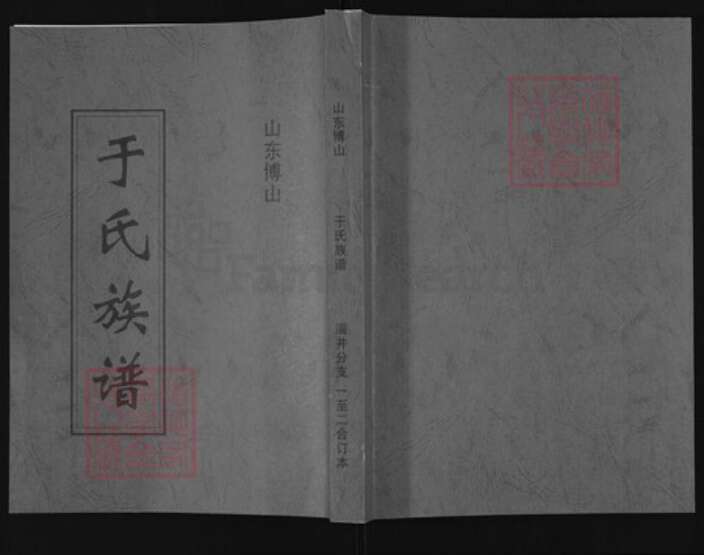 于氏族谱
山东博山
山东博山
于氏族谱
井分支 一至二合订本